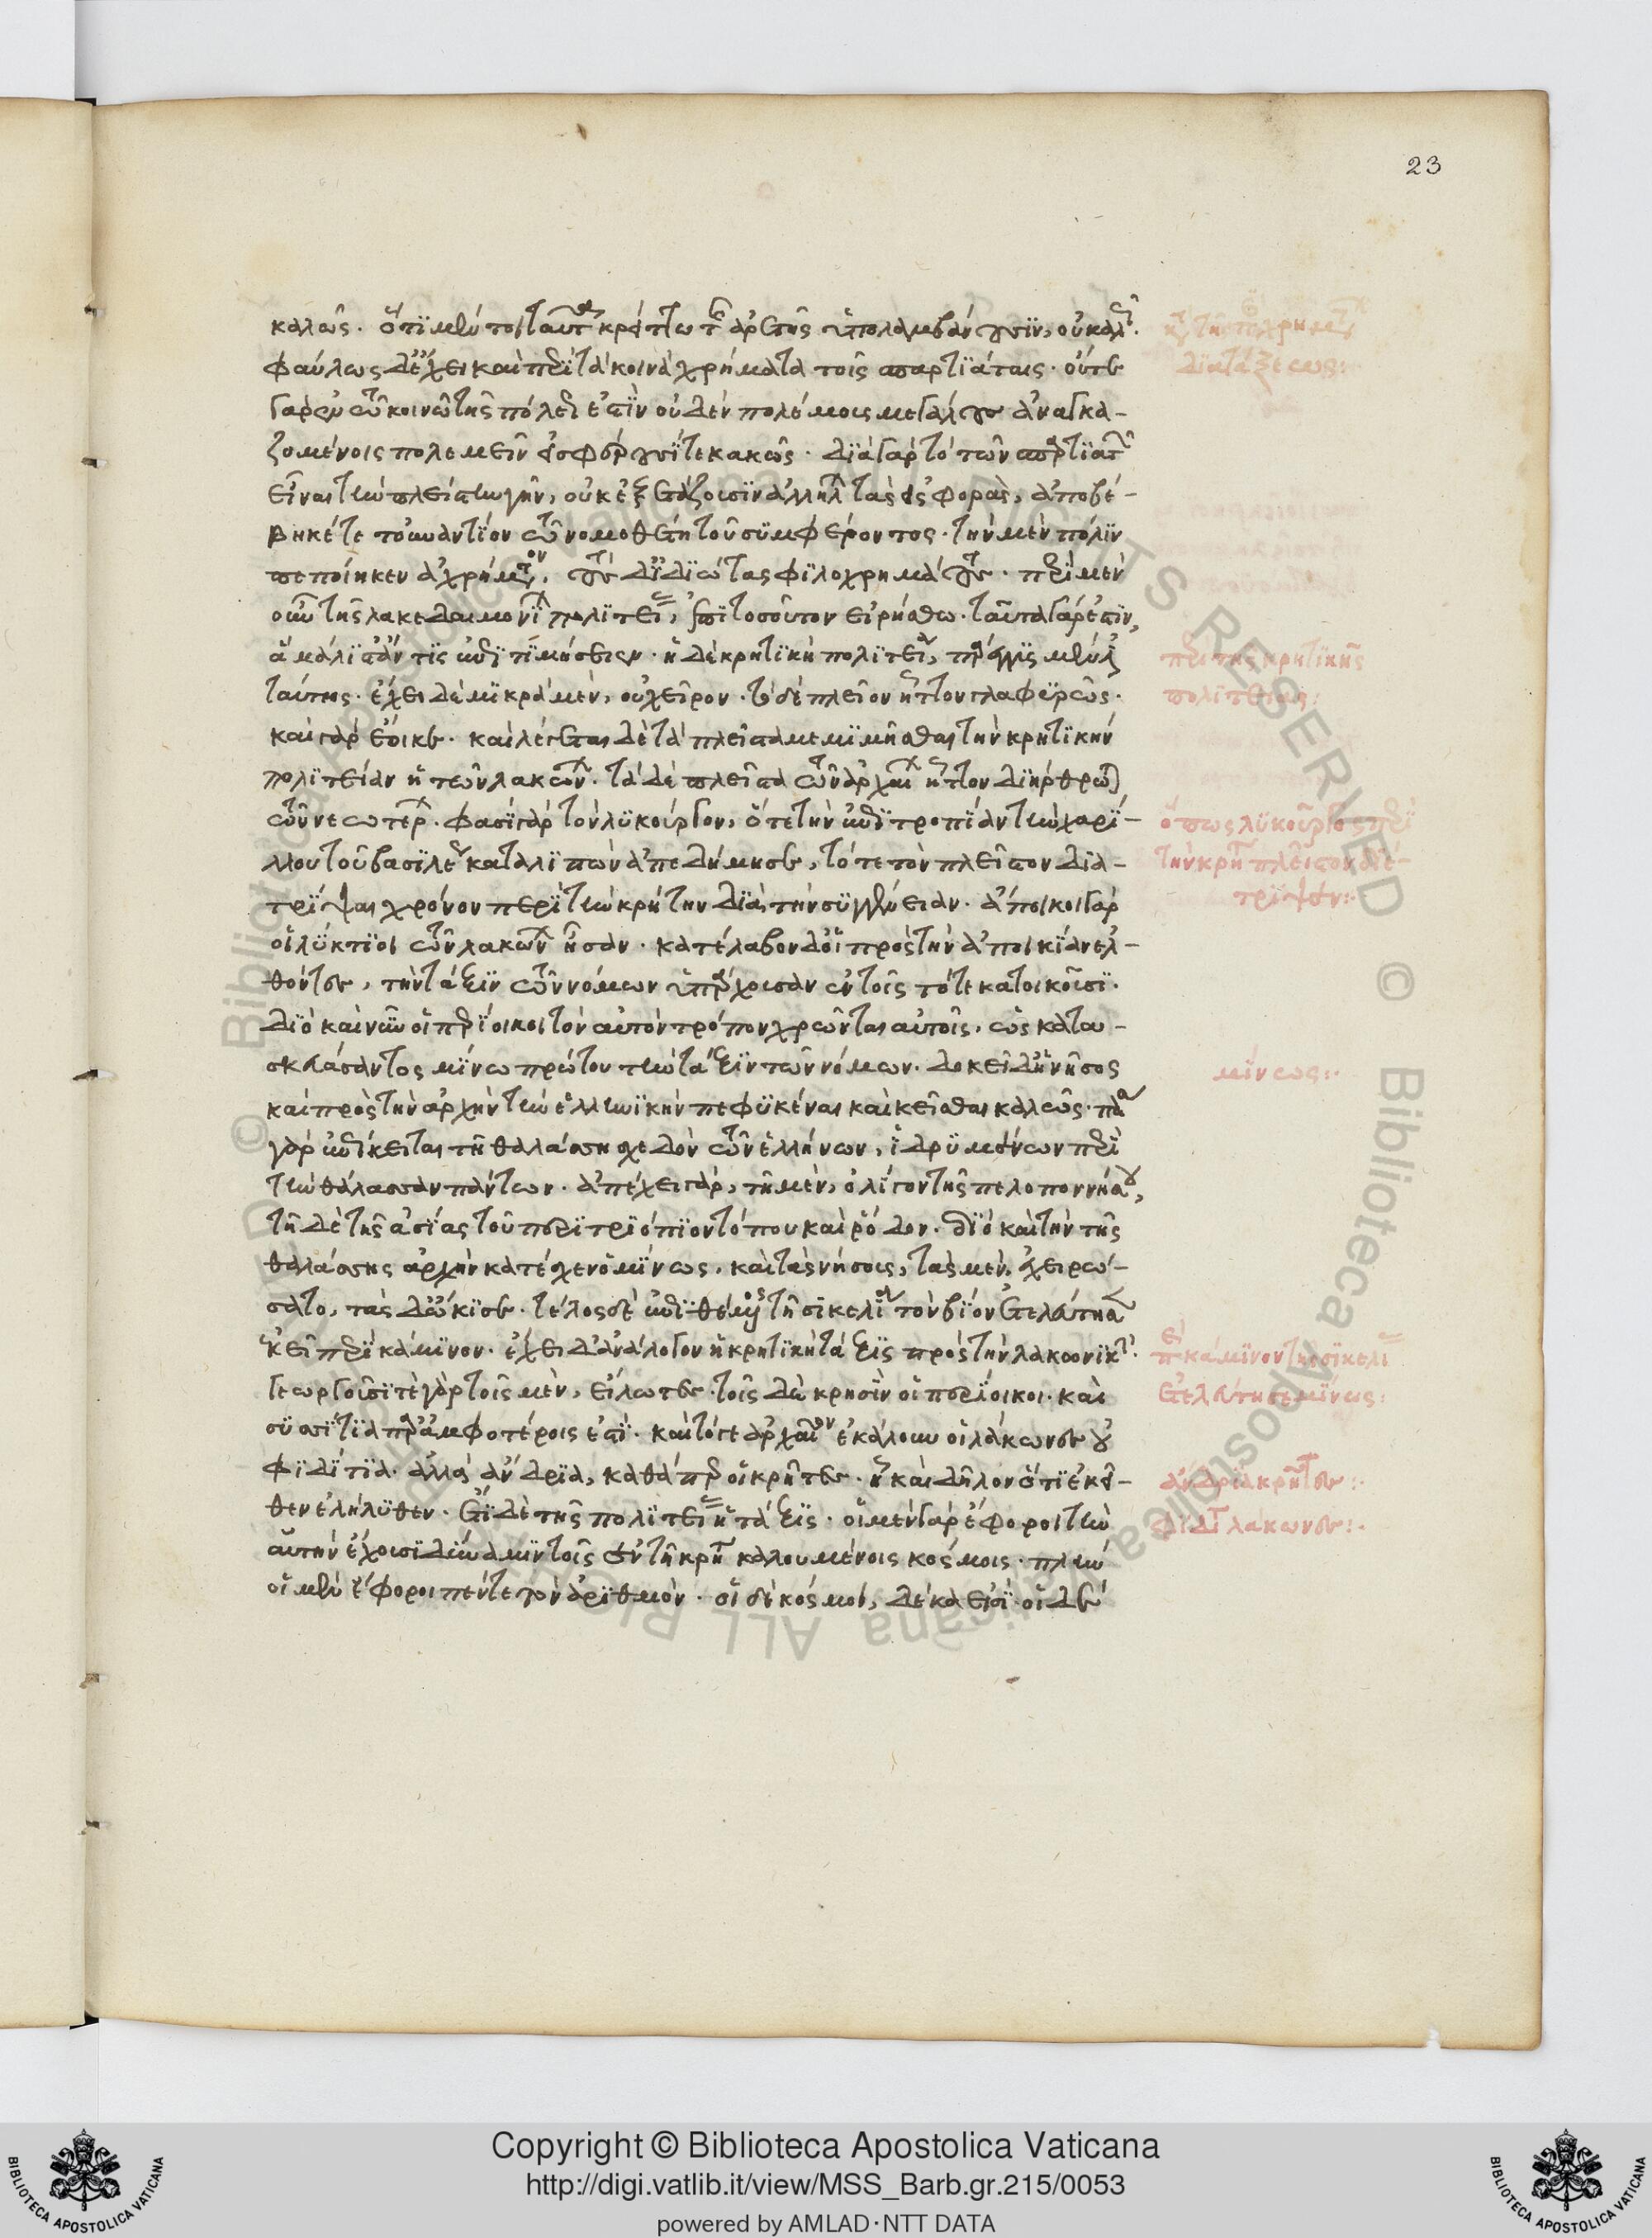 23
καλῶς. ὅτι μέντοι ταῦτα κρείττω τῆς ἀρετῆς ὑπολαμβάνουσιν, οὐ καλῶς.
φαύλως δὲ ἔχει καὶ περὶ τὰ κοινὰ χρήματα τοῖς σπαρτιάταις. οὔτε
γὰρ ἐν τῶ κοινῶ τῆς πόλεώς ἐστιν οὐδὲν πολέμους μεγάλους ἀναγκα-
ζομένοις πολεμεῖν εἰσφέρουσί τε κακῶς. διὰ γὰρ τὸ τῶν σπαρτιατῶν
εἶναι τὴν πλείστην γῆν, οὐκ ἐξετάζουσιν ἀλλήλων τὰς εἰσφοράς, ἀποβέ-
βηκέ τε τοὐναντίον τῶ νομοθέτη τοῦ συμφέροντος. τὴν μὲν πόλιν
πεποίηκεν ἀχρήματον, τοὺς δ' ἰδιώτας φιλοχρημάτους. περὶ μὲν
οὖν τῆς λακεδαιμονίων πολιτείας, ἐπὶ τοσοῦτον εἰρήσθω. ταῦτα γάρ ἐστιν,
ἃ μάλιστ' ἄν τις ἐπιτιμήσειεν. ἡ δὲ κρητικὴ πολιτεία, πάρεγγυς μέν ἐστι
ταύτης. ἔχει δὲ μικρὰ μὲν, οὐ χεῖρον. τὸ δὲ πλεῖον ἧττον γλαφυρῶς.
καὶ γὰρ ἔοικε. καὶ λέγεται δὲ τὰ πλεῖστα μεμιμῆσθαι τὴν κρητικὴν
πολιτείαν ἡ τῶν λακώνων. τὰ δὲ πλεῖστα τῶν ἀρχαίων ἧττον διήρθρωται
τῶν νεωτέρων. φασὶ γὰρ τὸν λυκοῦργον, ὅτε τὴν ἐπιτροπίαν τὴν χαρί-
λλου τοῦ βασιλέως καταλιπὼν ἀπεδήμησε, τότε τὸν πλεῖστον δια-
τρίψαι χρόνον περὶ τὴν κρήτην διὰ τὴν συγγένειαν. ἄποικοι γὰρ
οἱ λύκτιοι τῶν λακώνων ἦσαν. κατέλαβον δ' οἱ πρὸς τὴν ἀποικίαν ἐλ-
θόντες, τὴν τάξιν τῶν νόμων ὑπάρχουσαν ἐν τοῖς τότε κατοικοῦσι.
διὸ καὶ νῦν οἱ περίοικοι τὸν αὐτὸν τρόπον χρῶνται αὐτοῖς, ὡς κατα-
σκευάσαντος μίνω πρώτου τὴν τάξιν τῶν νόμων. δοκεῖ δ' ἡ νῆσος
καὶ πρὸς τὴν ἀρχὴν τὴν ἑλληνικὴν πεφυκέναι καὶ κεῖσθαι καλῶς. πάση
γὰρ ἐπίκειται τῆ θαλάσση σχεδὸν τῶν ἑλλήνων, ἱδρυμένων περὶ
τὴν θάλασσαν πάντων. ἀπέχει γὰρ, τῆ μὲν, ὀλίγον τῆς πελοποννήσου,
τῆ δὲ τῆς ἀσίας τοῦ περὶ τριόπιον τόπου καὶ ῥόδου. διὸ καὶ τὴν τῆς
θαλάσσης ἀρχὴν κατέσχεν ὁ μίνως, καὶ τὰς νήσους, τὰς μὲν, ἐχειρώ-
σατο, τὰς δ' ὤκισε. τέλος δὲ ἐπιθέμενος τῆ σικελία τὸν βίον ἐτελεύτησεν
ἐκεῖ περὶ κάμινον. ἔχει δ' ἀνάλογον ἡ κρητικὴ τάξις πρὸς τὴν λακωνικήν.
γεωργοῦσί τε γὰρ τοῖς μὲν, εἵλωτες. τοῖς δὲ κρησὶν οἱ περίοικοι. καὶ
συσσίτια παρ' ἀμφοτέροις ἐστί. καὶ τό γε ἀρχαῖον ἐκάλουν οἱ λάκωνες οὐ
φιδίτια. ἀλλὰ ἄνδρια, καθάπερ οἱ κρῆτες. ἧ καὶ δῆλον ὅτι ἐκεῖ-
θεν ἐλήλυθεν. ἔτι δὲ τῆς πολιτείας ἡ τάξις. οἱ μὲν γὰρ ἔφοροι τὴν
αὐτὴν ἔχουσι δύναμιν τοῖς ἐν τῆ κρήτη καλουμένοις κόσμοις. πλὴν
οἱ μὲν ἔφοροι πέντε τὸν ἀριθμὸν. οἱ δὲ κόσμοι, δέκα εἰσί. οἱ δὲ
διατάξεως:
περὶ τῆς κρητικῆς
πολιτείας:
ὅπως λυκοῦργος περὶ
τὴν κρήτην πλεῖστον διέ-
τριψεν:
μίνως:
ἐτελεύτησε μίνως:
ἄνδρια κρῆτες:
φιδίτια λάκωνες:
© Biblioteca Apostolica Vaticana ALL RIGHTS RESERVED
Copyright © Biblioteca Apostolica Vaticana
http://digi.vatlib.it/view/MSS_Barb.gr.215/0053
powered by AMLAD·NTT DATA
BIBLIOTECA APOSTOLICA VATICANA
BIBLIOTECA APOSTOLICA VATICANA